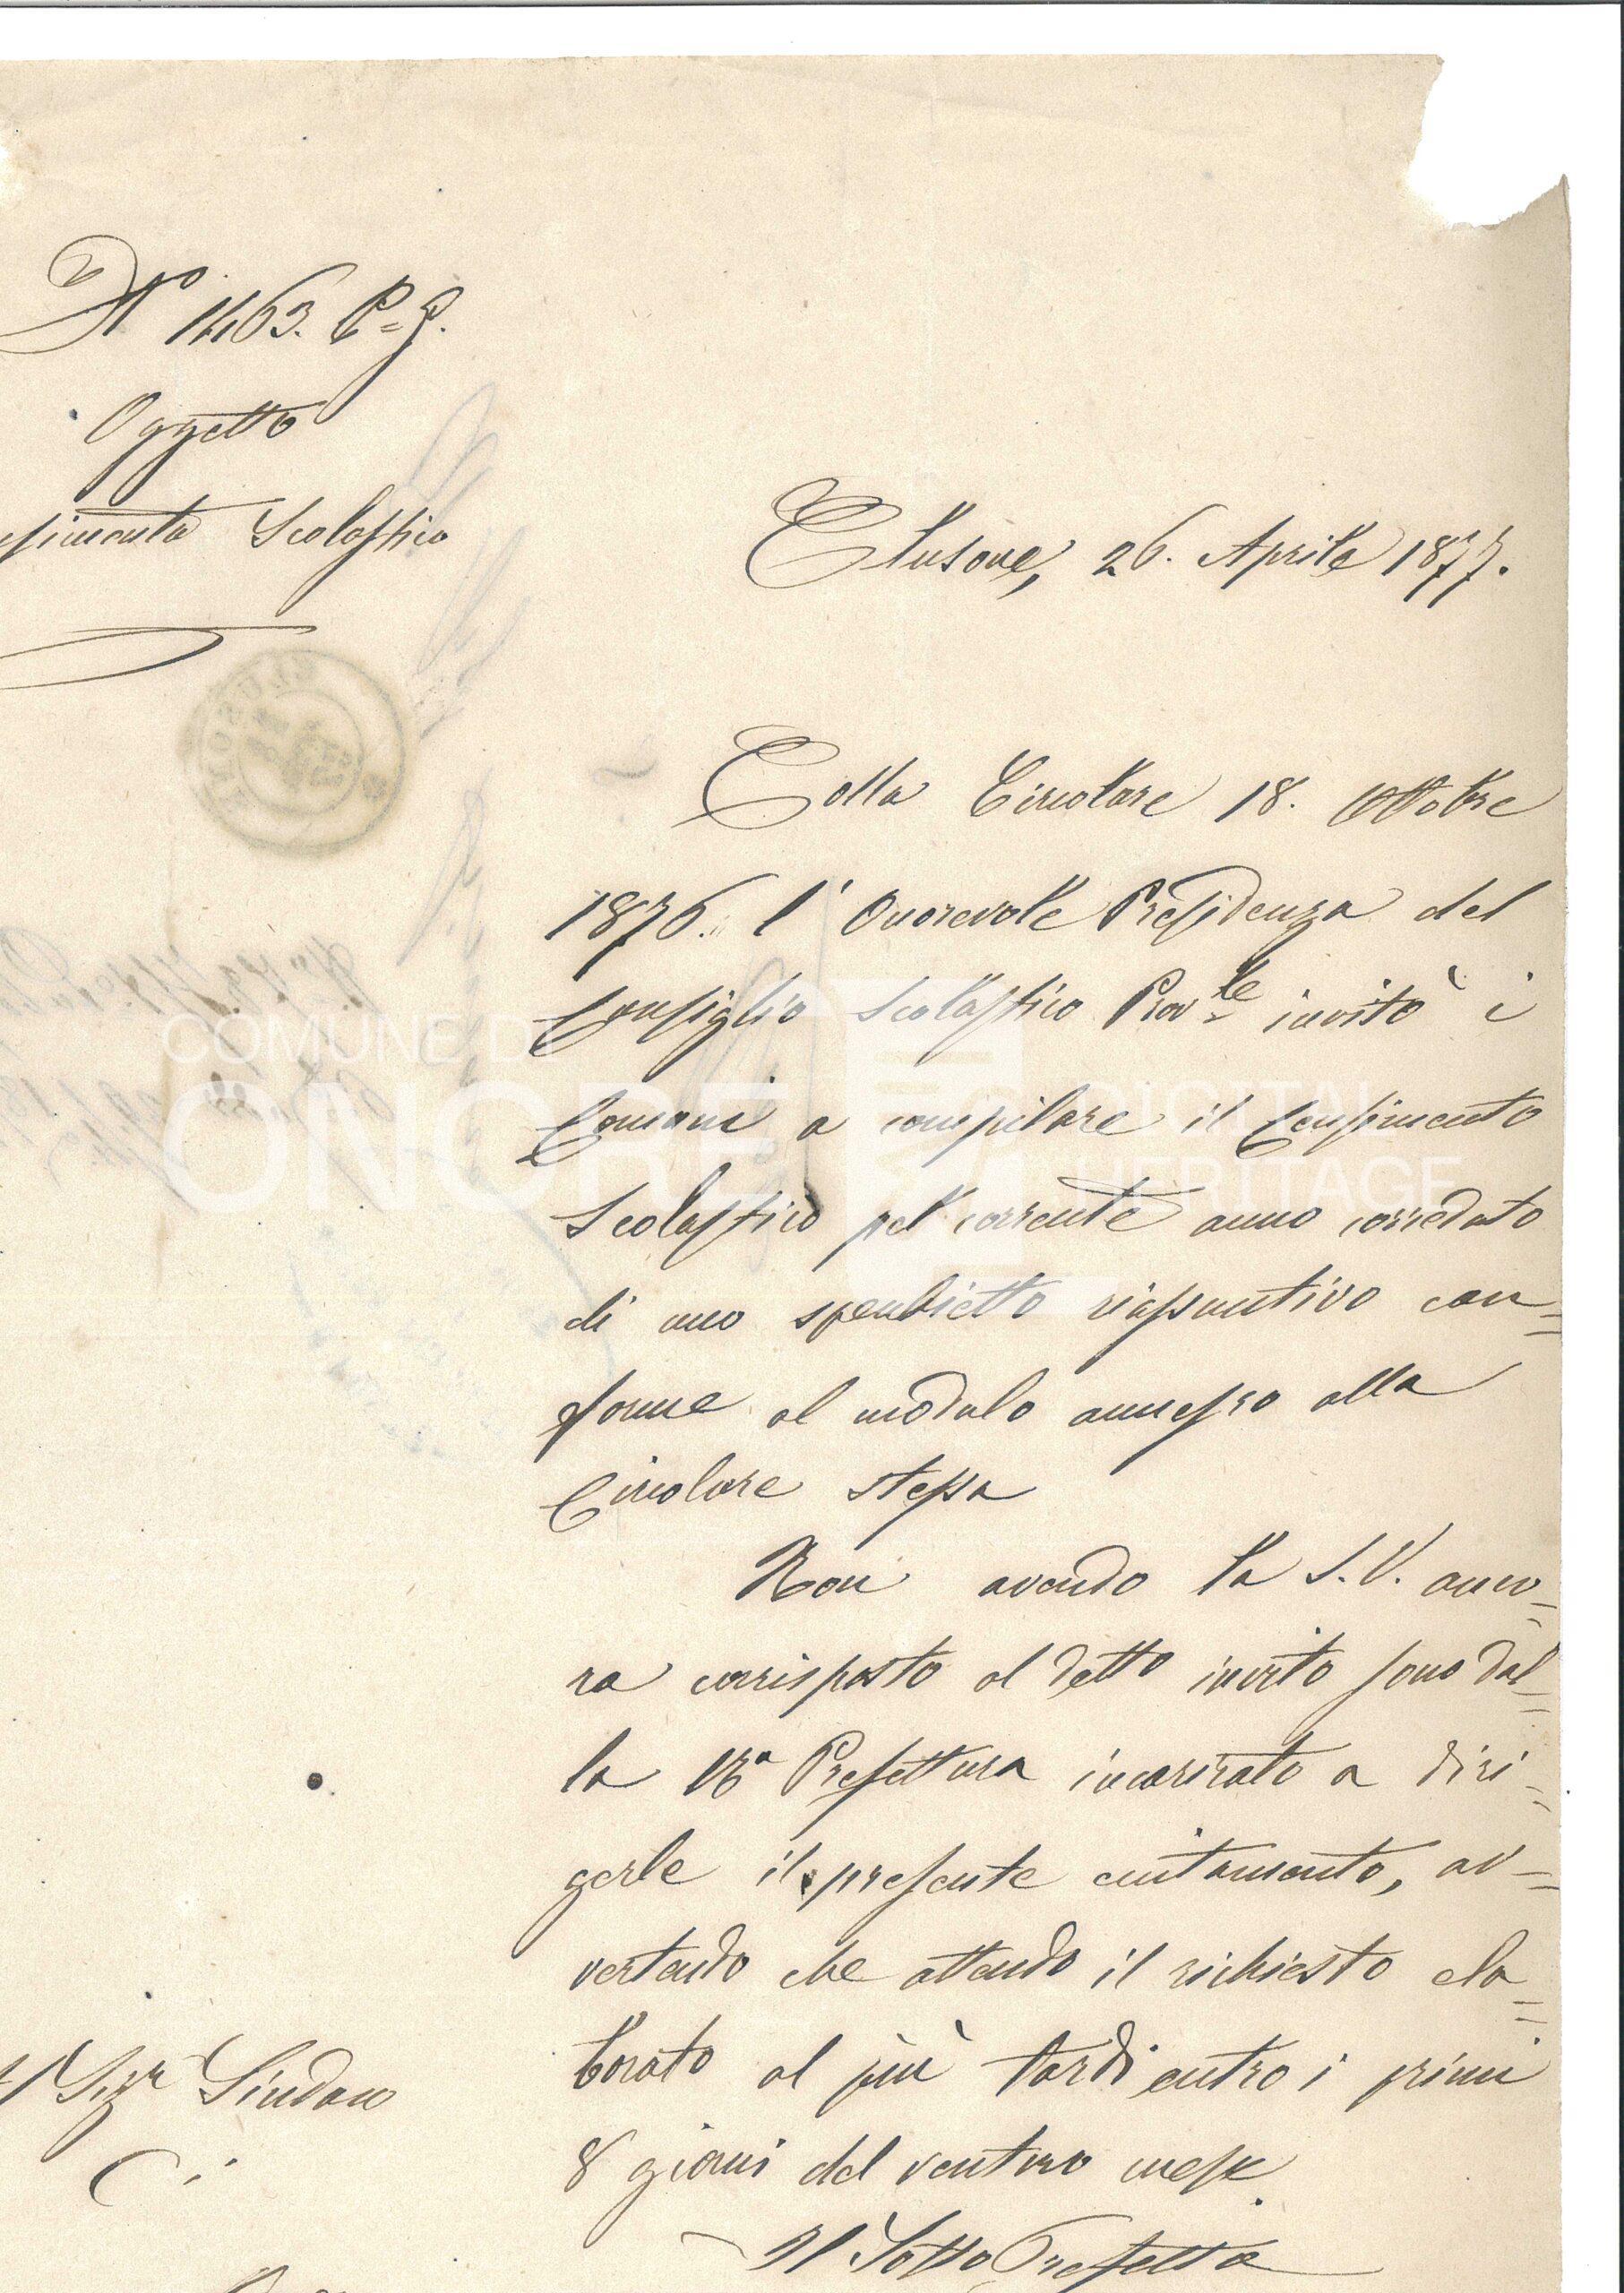 N° 1463. P. J.
Oggetto
Scolastico
Clusone, 26. Aprile 1877.
Colla Circolare 18. Ottobre
1876. l'Onorevole Presidenza del
Consiglio Scolastico Prov.le invitò i
Comuni a compilare il Censimento
Scolastico pel corrente anno corredato
di uno specchietto riassuntivo con=
forme al modulo annesso alla
Circolare stessa
Non avendo la S.V. anco=
ra corrisposto al detto invito sono dal=
la Ra Prefettura incaricato a diri=
gerle il presente eccitamento, av=
vertendo che attendo il richiesto ela=
borato al più tardi entro i primi
8 giorni del venturo mese.
Il Sotto Prefetto
Sigr Sindaco
di
COMUNE DI
ONORE
DIGITAL
HERITAGE